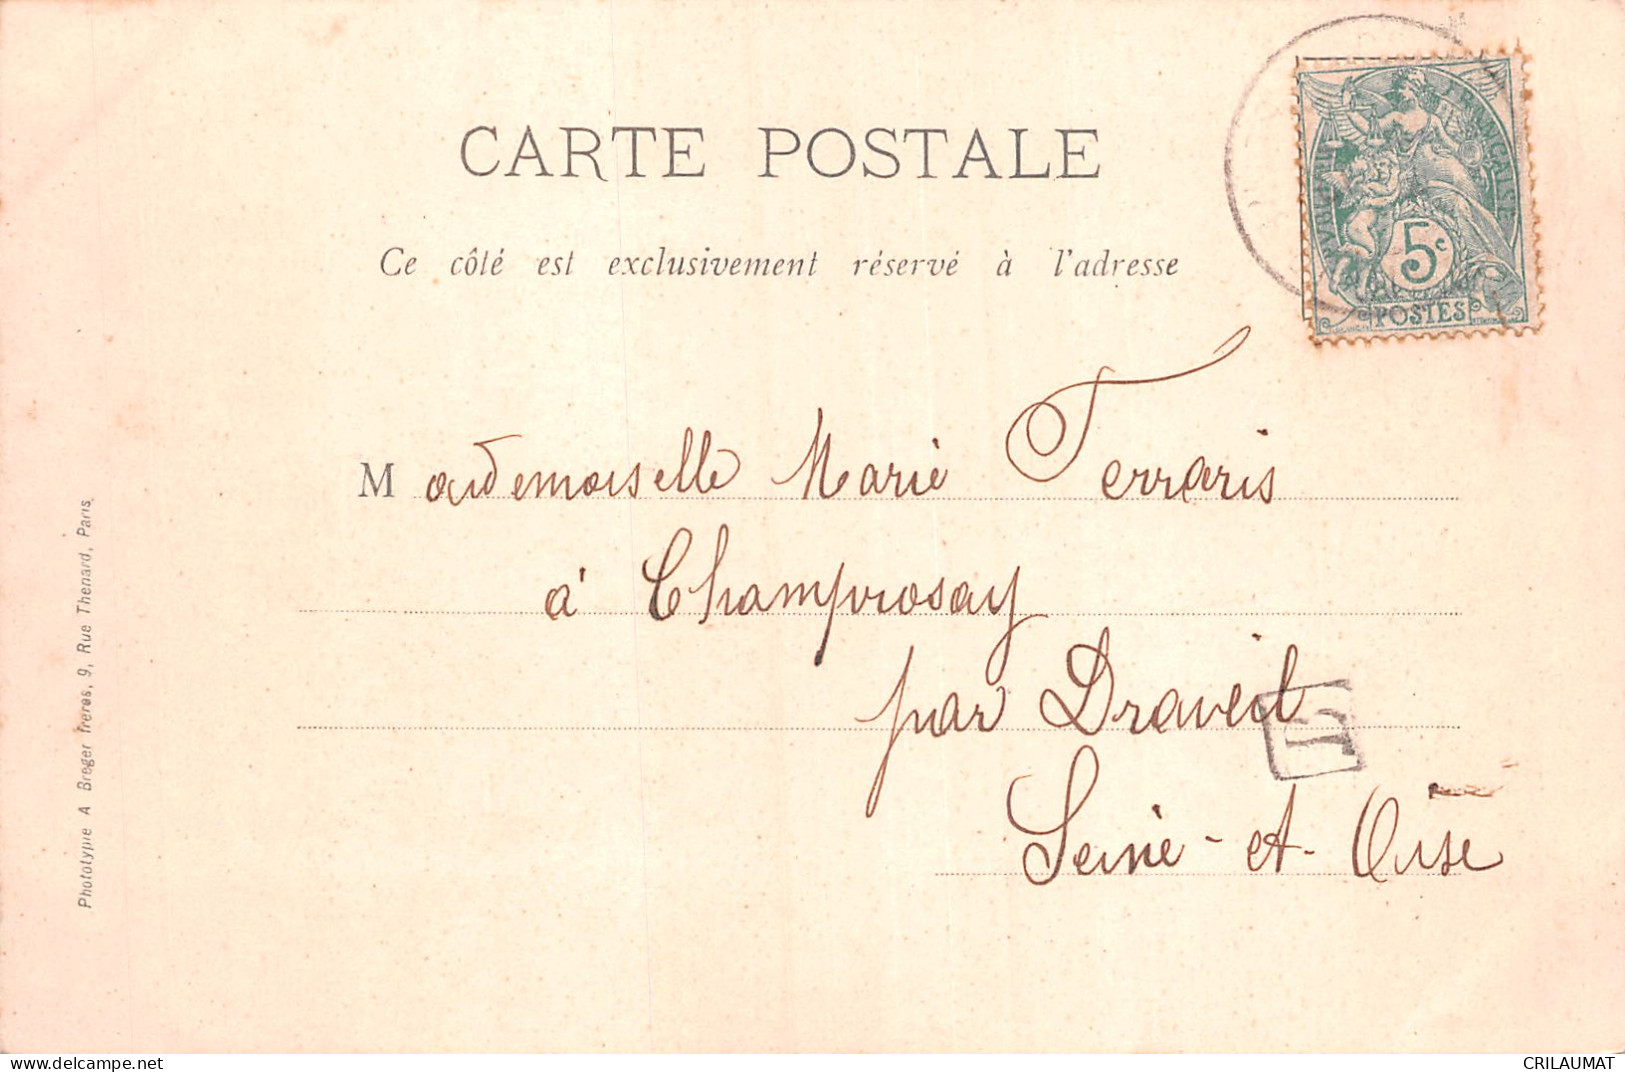 CARTE POSTALE
Ce côté est exclusivement réservé à l'adresse
RÉPUBLIQUE FRANÇAISE
5c
POSTES
Mademoiselle Marie Ferraris
à Champrosay
par Draveil
T
Seine-et-Oise
Phototypie A Breger frères, 9, Rue Thenard, Paris
delcampe.net
CRILAUMAT